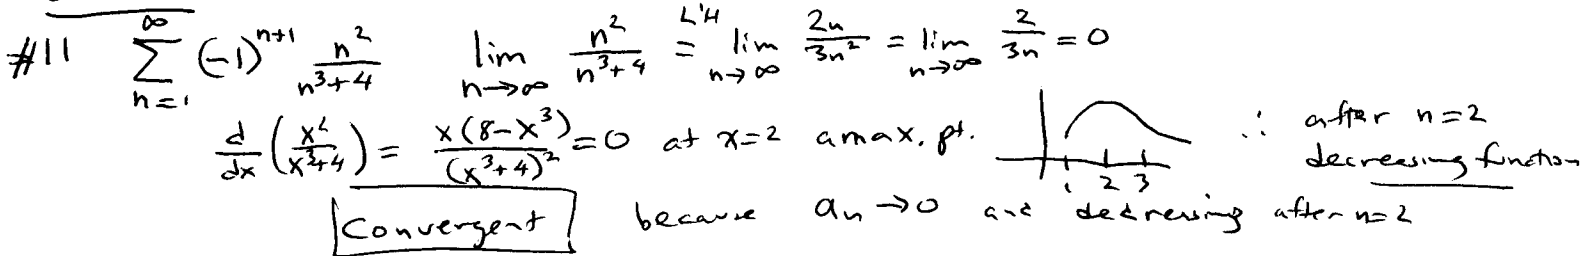 #11 ∑_{n=1}^{∞} (-1)^{n+1} n²/(n³+4) lim_{n→∞} n²/(n³+4) =^{L'H} lim_{n→∞} 2n/3n² = lim_{n→∞} 2/3n = 0
d/dx (x²/(x³+4)) = x(8-x³)/(x³+4)² = 0 at x=2 a max. pt. 1 2 3 ∴ after n=2
decreasing function
Convergent because aₙ→0 and decreasing after n=2